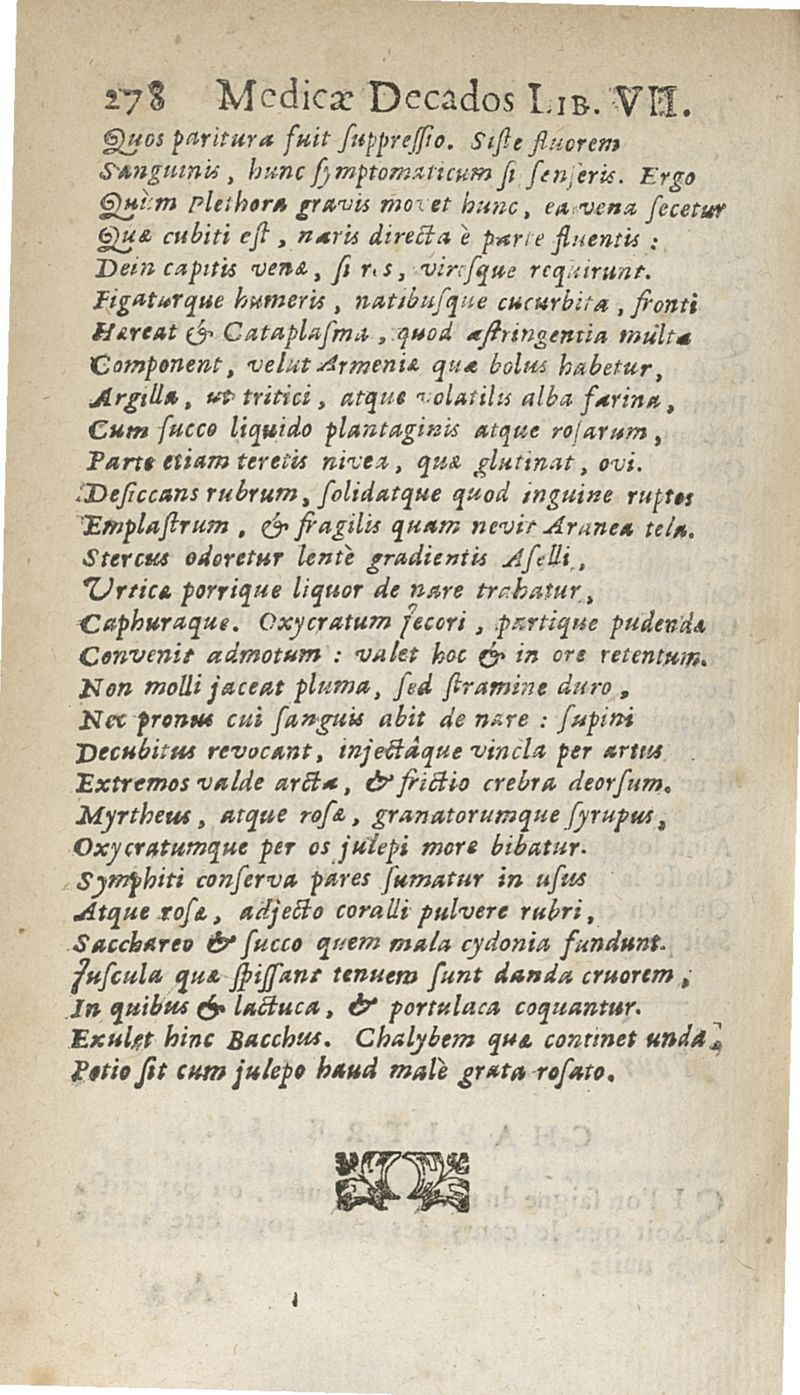 278 Medicæ Decados LIB. VII.
Quos paritura fuit ſuppreſſio. Siſte fluorem
Sanguinis, hunc ſymptomaticum ſi ſenſeris. Ergo
Quùm Plethora gravis movet hunc, ea vena ſecetur
Quæ cubiti eſt, naris directa è parte fluentis:
Dein capitis venæ, ſi res, vireſque requirunt.
Figaturque humeris, natibuſque cucurbita, fronti
Hæreat & Cataplaſma, quod aſtringentia multa
Component, velut Armeniæ quæ bolus habetur,
Argilla, ut tritici, atque volatilis alba farina,
Cum ſucco liquido plantaginis atque roſarum,
Parte etiam teretis nivea, quæ glutinat, ovi.
Deſiccans rubrum, ſolidatque quod inguine ruptos
Emplaſtrum, & fragilis quam nevit Aranea tela.
Stercus odoretur lentè gradientis Aſelli,
Urticæ porrique liquor de nare trahatur,
Caphuraque. Oxycratum Jecori, partique pudendæ
Convenit admotum: valet hoc & in ore retentum.
Non molli jaceat pluma, ſed ſtramine duro,
Nec pronus cui ſanguis abit de nare: ſupini
Decubitus revocant, injectâque vincla per artus
Extremos valde arcta, & frictio crebra deorſum.
Myrtheus, atque roſæ, granatorumque ſyrupus,
Oxycratumque per os julepi more bibatur.
Symphiti conſerva pares ſumatur in uſus
Atque roſæ, adjecto coralli pulvere rubri,
Sacchareo & ſucco quem mala cydonia fundunt.
Juſcula quæ ſpiſſant tenuem sunt danda cruorem,
In quibus & lactuca, & portulaca coquantur.
Exulet hinc Bacchus. Chalybem quæ continet unda,
Potio ſit cum julepo haud malè grata roſato.